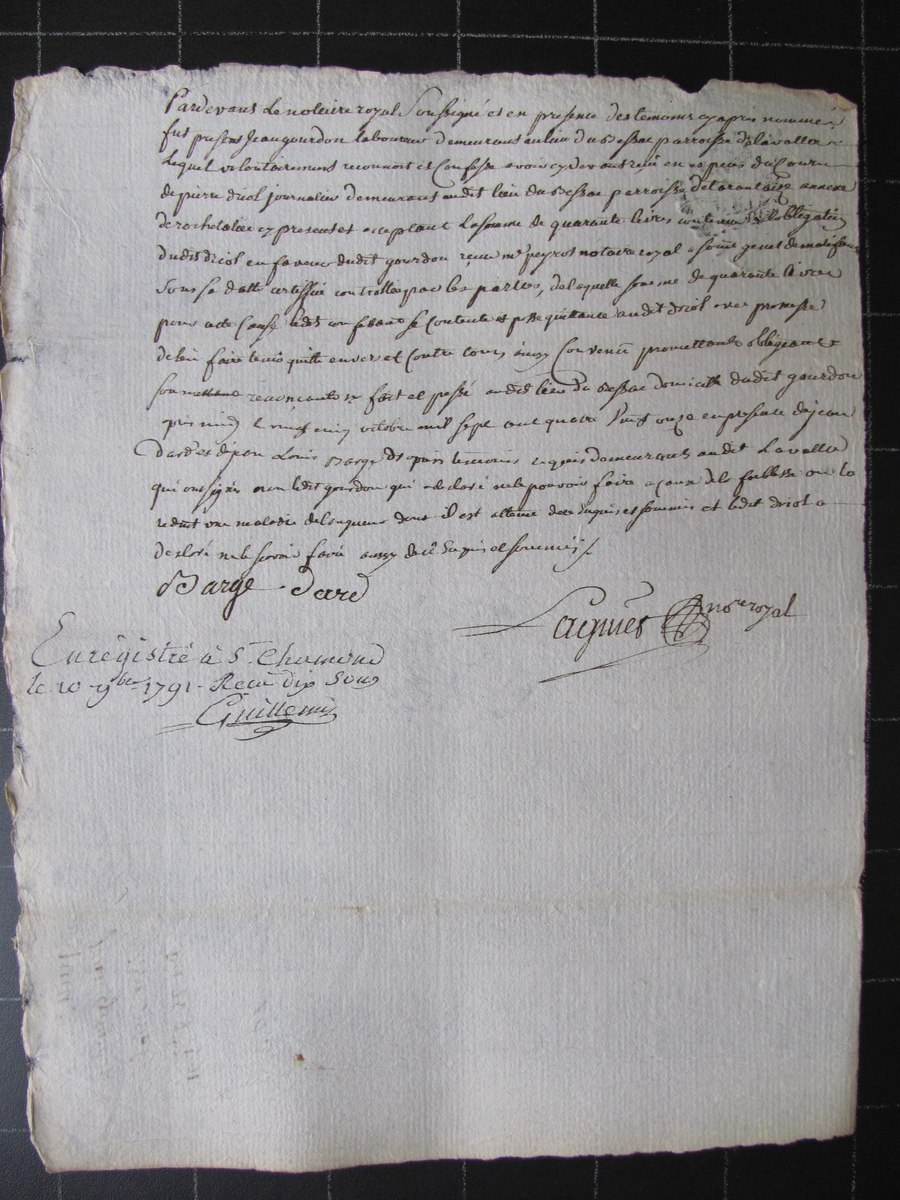 Pardevant Le notaire royal Soussigné et en presence des temoins cy apres nommes
fut present Jean gourdon laboureur demeurant au lieu du Bessac parroisse de lavalla
lequel volontairement reconnoit et Confesse avoir cy devant reçu en especes de Cours
de pierre driol journalier demeurant audit lieu du Bessac parroisse de tarantaize annexe
de rochetaillée cy present et acceptant La Somme de quarante livres contenue en L'obligation
dudit driol en faveur dudit gourdon reçue me peyrot notaire royal a
Sous sa datte certiffié controllée par les parties, de laquelle somme de quarante Livres
pour cette Cause ledit confessant se contente et passe quittance audit driol avec promesse
de l'en faire tenir quitte envers et Contre tous ainsy Convenu promettant obligeant
soumettant renonçant fait et passé audit lieu du Bessac domicille dudit gourdon
apres midy le vingt cinq octobre mil sept cent quatre vingt onze en presence de jean
dard et de Louis Barge temoins requis demeurants audit Lavalla
qui ont signé non ledit gourdon qui a declaré ne le pouvoir faire a cause de la foiblesse ou la
reduit une maladie de langueur dont il est atteint de ce enquis et sommé et ledit driol a
declaré ne le savoir faire aussy de ce Enquis et sommé
Barge Dard
not.e royal
Enrégistré à St. Chamond
le 10 9bre 1791 - Recu dix Sous
Guillemin